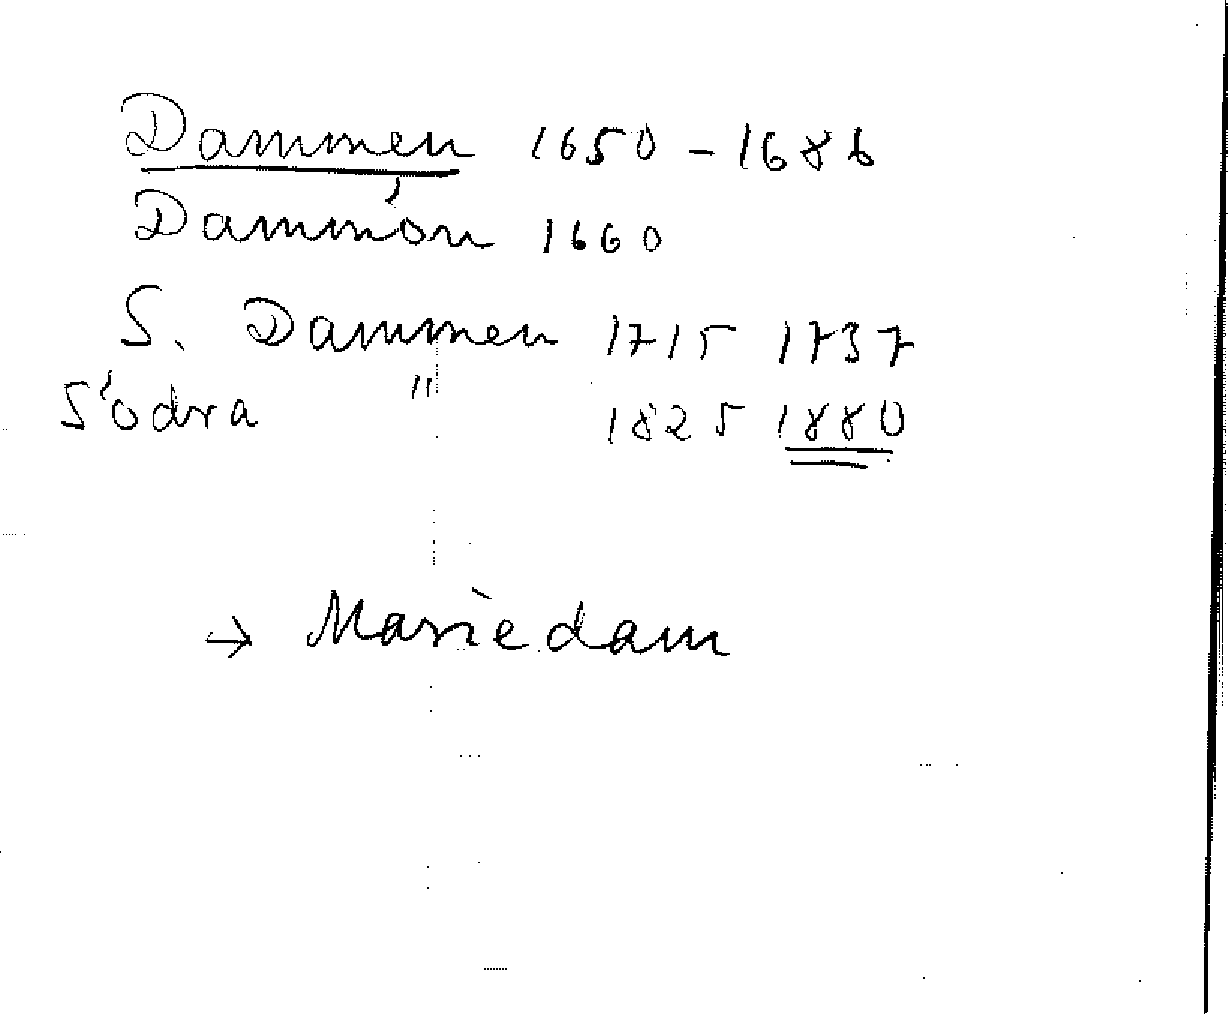 Dammen 1650 - 1686
Dammön 1660
S. Dammen 1715 1737
Södra " 1825 1880
→ Mariedam